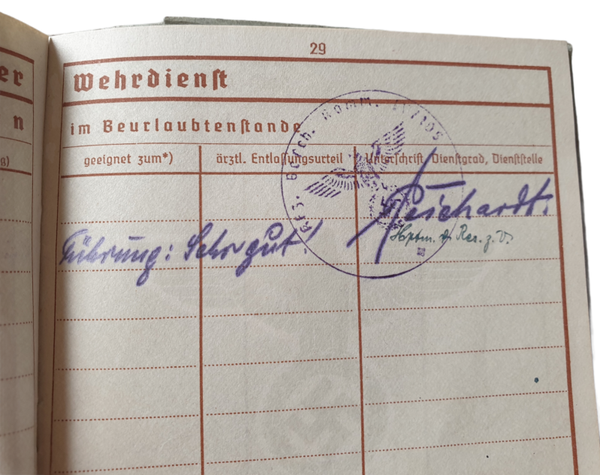 29
er
Wehrdienſt
n
im Beurlaubtenſtande
geeignet zum*)
ärztl. Entlaſſungsurteil
Unterſchrift, Dienſtgrad, Dienſtſtelle
Komm.
Reichardt.
Führung: Sehr gut!
Hptm. d. Res. z. V.